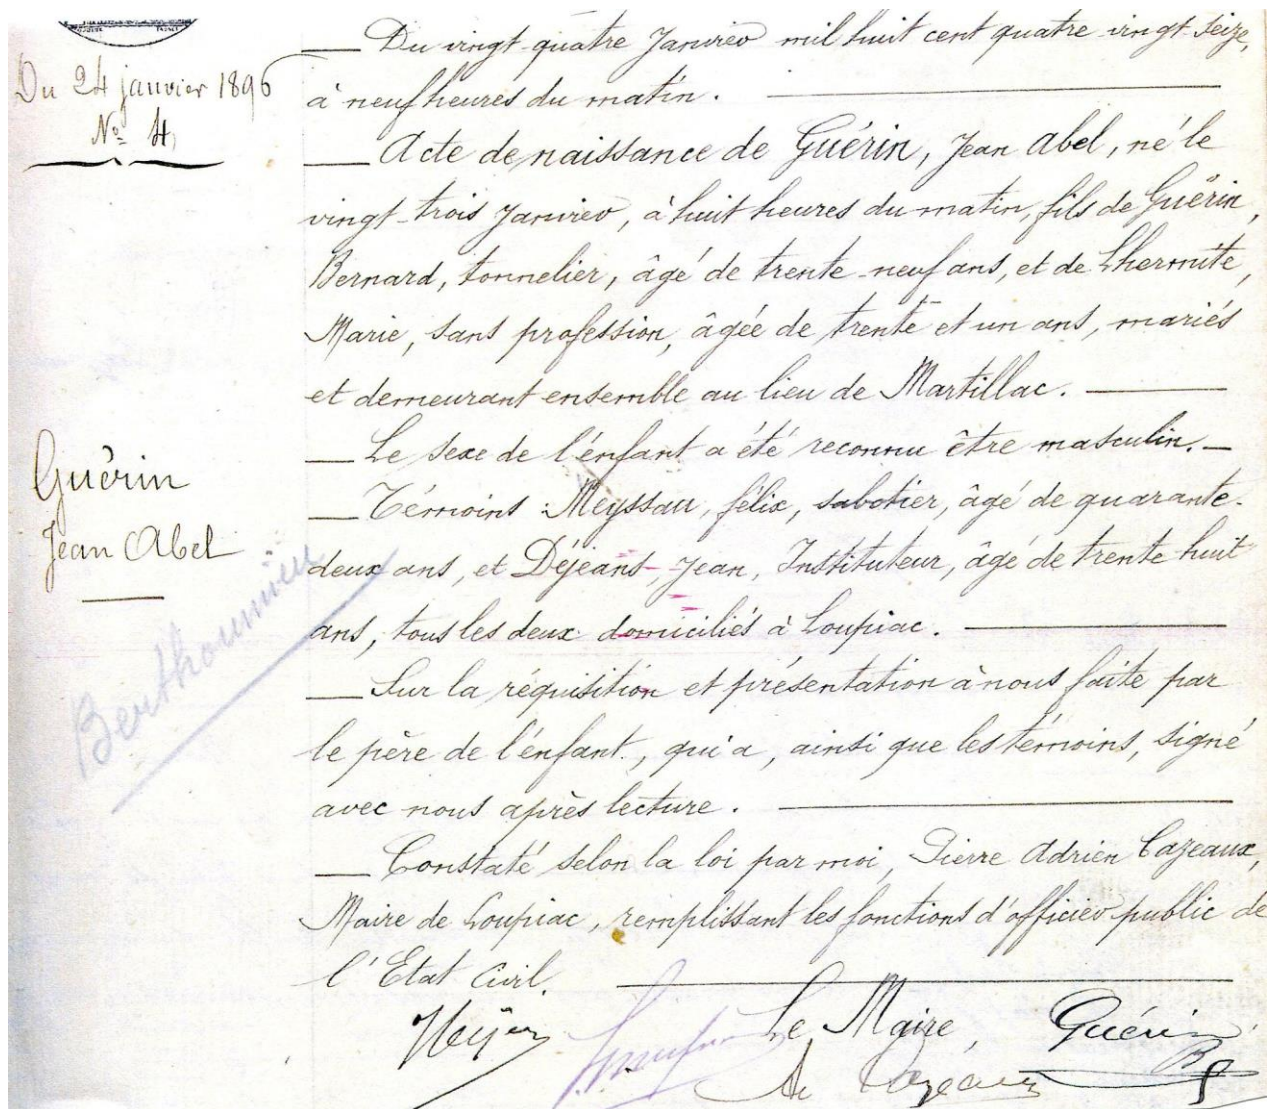 Du 24 janvier 1896
Nº 4
Du vingt-quatre Janvier mil huit cent quatre-vingt-seize,
à neuf heures du matin.
Acte de naissance de Guérin, Jean Abel, né le
vingt-trois Janvier, à huit heures du matin, fils de Guérin,
Bernard, tonnelier, âgé de trente-neuf ans, et de Lhermite,
Marie, sans profession, âgée de trente et un ans, mariés
et demeurant ensemble au lieu de Martillac.
Le sexe de l'enfant a été reconnu être masculin.
Guérin
Jean Abel
Témoins : Meyssan, félix, sabotier, âgé de quarante-
deux ans, et Déjeans, Jean, Instituteur, âgé de trente huit
ans, tous les deux domiciliés à Loupiac.
Berthoumieu
Sur la réquisition et présentation à nous faite par
le père de l'enfant, qui a, ainsi que les témoins, signé
avec nous après lecture.
Constaté selon la loi par moi, Pierre Adrien Cazeaux,
Maire de Loupiac, remplissant les fonctions d'officier public de
l'Etat Civil.
Le Maire,
Guérin
A Cazeaux